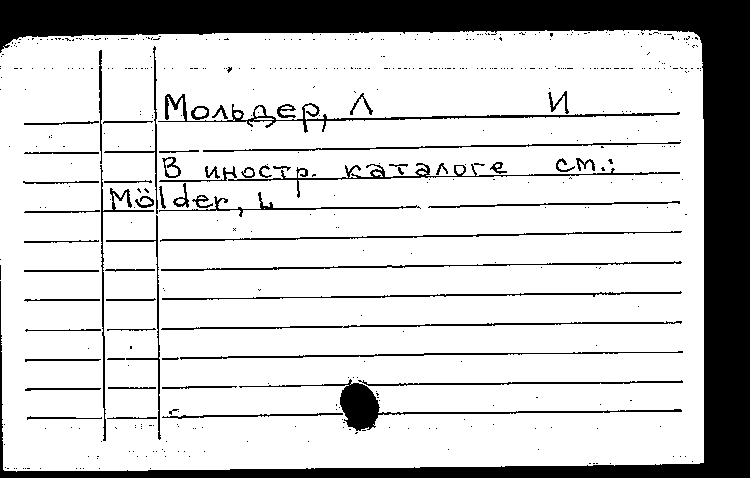 Мольдер, Л И
В иностр. каталоге см.:
Mölder, L